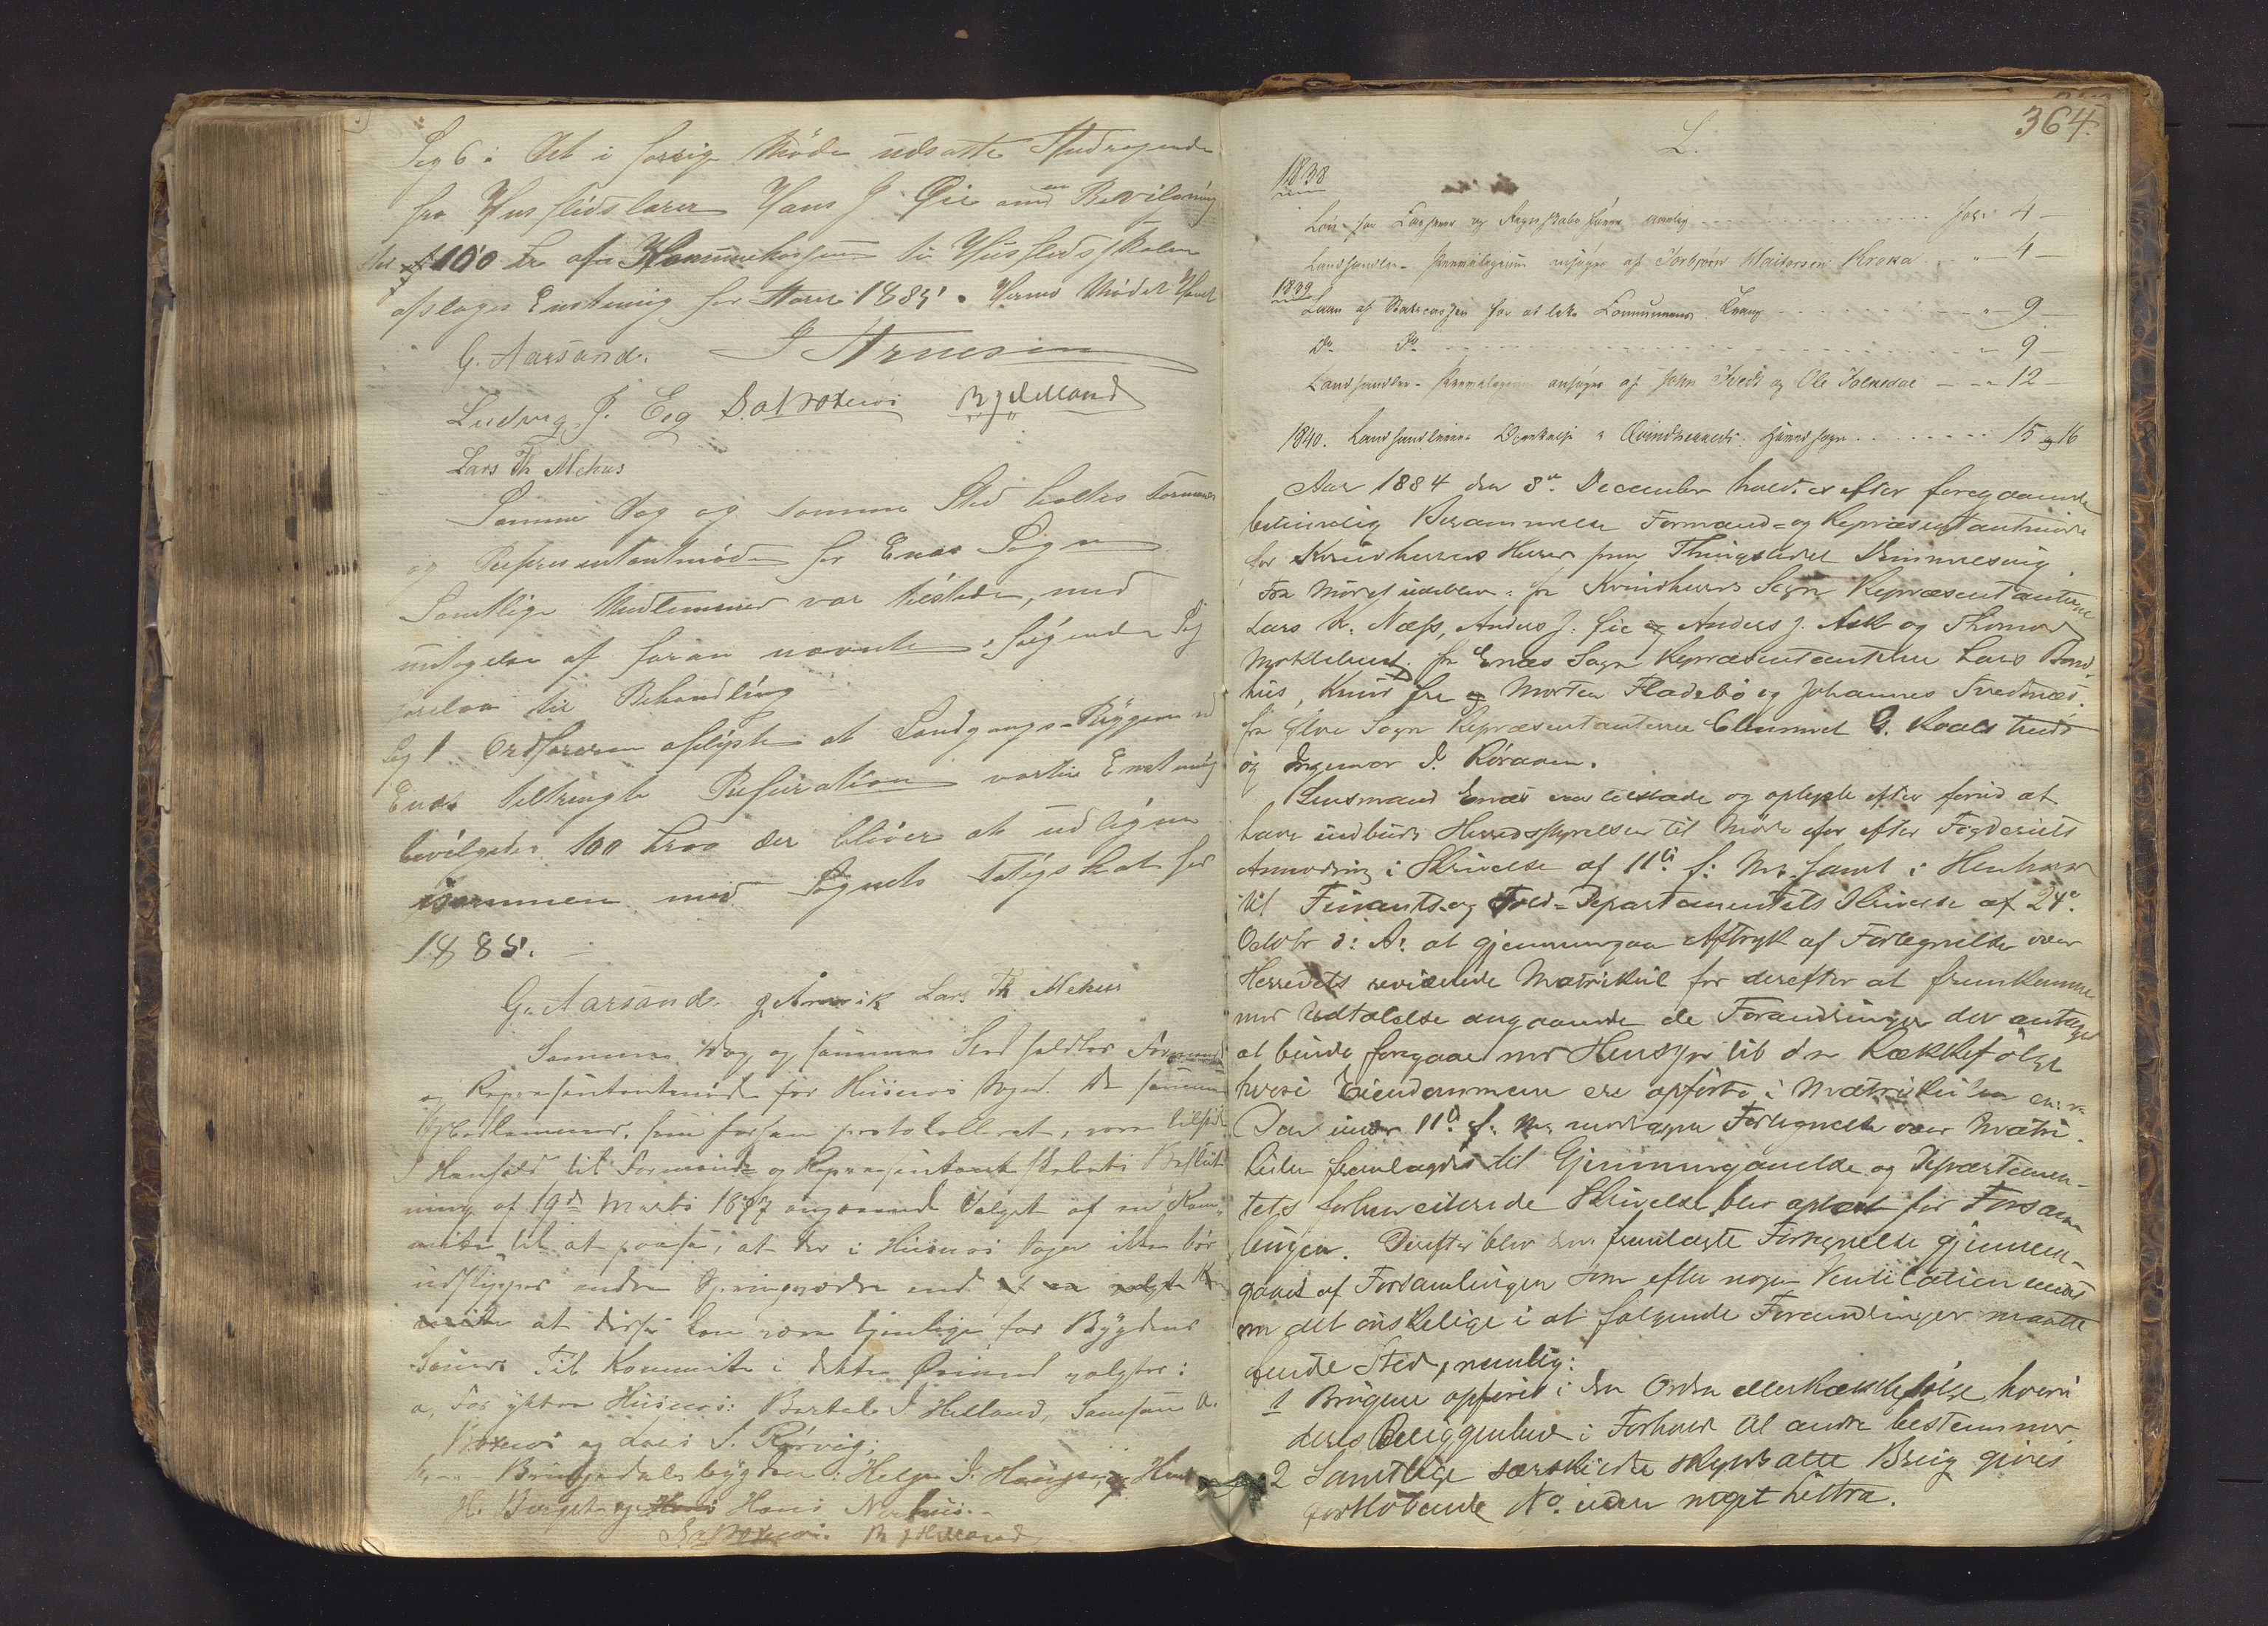 Sag 6: Det i forrige Møde udsatte Andragende
fra Husflidslærer Hans J. Øie om en Bevilgning
stor 100 Kr af Kommunekassen til Husflidsskolen
afsloges Enstemig for Aaret 1885. Hermed Mødet Hævet
G. Aarsand. J Arnesen
Ludvig J. Eeg S. a Woxnes B J Helland
Lars Th Mehus
Samme Dag og samme Sted holdtes Formands
og Representantmøde for Enæs Sogn
Samtlige Medlemmer var tilstede, med
undtagelse af foran nævnte, følgende Sag
forelaa til Behandling
Sag 1 Ordføreren oplyste at Landgangs-Bryggen i
Enæs tiltrængte Reparation vartil Enstemig
bevilgedes 100 Kroo der bliver at udligne
sammen med Sognets Fatigskat for
1885.
G. Aarsand. J. Arnvik Lars Th Mehus
Samme Dag og samme Sted holdtes Formands
og Repræsentantmøde for Husnes Sogn. De samme
Medlemmer, som foran protokolleret, vare tilstede
I Henhold til Formænds og Repræsentantskabets Beslut
ning af 19de Marts 1877 angaaende Valget af en Kom-
mite til at paase, at der i Husnes Sogn ikke bör
udskygges andre Springvædre end
at disse kan være tjenlige for Bygdens
Sauer. Til Kommite i dette Øiemed valgtes:
a, For ytre Husnes: Bertel J Helland, Samson A.
Woxnes og Lars S. Rørvig;
H. Berget og Hans Nerhus.
S a Woxnes. B J Helland
364.
L.
1838
Løn for Kasserer og Regnskabsfører Pag. 4 —
Landhandler-Privilegium ansøgt af Torbjørn Kroka " 4 —
1839
Laan af Bankcassen for at lette Communens Trang " 9 —
Do Do " 9 —
Landhandler-Privilegium ansøgt af John Tvedt og Ole — " 12 —
1840. Landhandleres i Qvindherreds Præstegjeld 15 og 16
Aar 1884 den 8de December holdtes efter foregaaende
betimelig Berammelse Formand- og Repræsentantmøde
for Kvindherreds Herred paa Thingstedet Dimmelsvig
Fra Mødet udeblev: fra Kvindherreds Sogn Repræsentanterne
Lars K. Næss, Anders J. Øie og Anders J. Ask og Thomas
Myklebust. fra Enæs Sogn Repræsentanterne Lars Bond-
hus, Knud og Morten Fladebø og Johannes Tvednæs.
fra Ølve Sogn Repræsentanterne Clemmet G. Kvalstveds
og Ingemar J. Röraaen.
Lensmand Enæs var tilstæde og oplyste efter forud at
have indbudt Herredsstyrelsen til Møde efter Fogderiets
Anmodning i Skrivelse af 11te f: M. samt i Henhold
til Finants- og Told-Departementets Skrivelse af 24de
Octobr d: A: at gjennemgaa Aftryk af Fortegnelse over
Herredets reviderede Matrikul for derefter at fremkomme
med Udtalelse angaaende de Forandringer der antages
at burde foregaae med Hensyn til den Rækkefölge
hvori Eiendommene ere opførte i Matrikulen
Den under 11te f: M. modtagne Fortegnelse over Matri-
kulen fremlagdes til Gjennemgaaelse og Departemen-
tets forhenværende Skrivelse blev oplæst for Forsam-
lingen. Derefter blev den fremlagte Fortegnelse gjennem-
gaaet af Forsamlingen som efter nogen Ventilation enedes
om det önskelige i at følgende Forandringer maatte
finde Sted, nemlig:
1 Brugene opföres i den Orden eller Rækkefölge, hvori
deres Beliggenhed i Forhold til andre bestemmer
2 Samtlige særskildte skyldsatte Brug gives
fortløbende No. uden noget Littra.